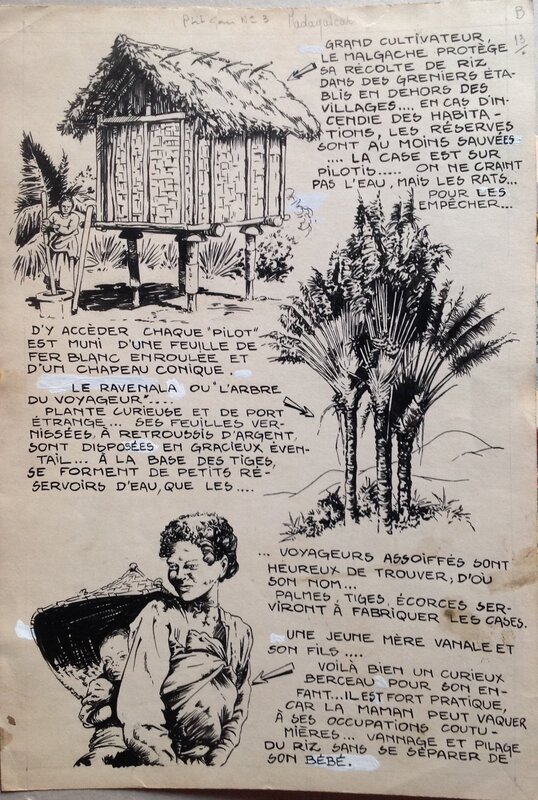 P'tit Gars No 3 Madagascar
B
13
GRAND CULTIVATEUR,
LE MALGACHE PROTÈGE
SA RÉCOLTE DE RIZ
DANS DES GRENIERS ÉTA-
BLIS EN DEHORS DES
VILLAGES.... EN CAS D'IN-
CENDIE DES HABITA-
TIONS, LES RÉSERVES
SONT AU MOINS SAUVÉES
.... LA CASE EST SUR
PILOTIS..... ON NE CRAINT
PAS L'EAU, MAIS LES RATS...
POUR LES
EMPÊCHER...
D'Y ACCÈDER CHAQUE "PILOT"
EST MUNI D'UNE FEUILLE DE
FER BLANC ENROULÉE ET
D'UN CHAPEAU CONIQUE.
LE RAVENALA OU "L'ARBRE
DU VOYAGEUR"....
PLANTE CURIEUSE ET DE PORT
ÉTRANGE... SES FEUILLES VER-
NISSÉES, À RETROUSSIS D'ARGENT,
SONT DISPOSÉES EN GRACIEUX ÉVEN-
TAIL.... À LA BASE DES TIGES,
SE FORMENT DE PETITS RÉ-
SERVOIRS D'EAU, QUE LES....
... VOYAGEURS ASSOIFFÉS SONT
HEUREUX DE TROUVER, D'OÙ
SON NOM...
PALMES, TIGES, ÉCORCES SER-
VIRONT À FABRIQUER LES CASES.
UNE JEUNE MÈRE VANALE ET
SON FILS....
VOILÀ BIEN UN CURIEUX
BERCEAU POUR SON EN-
FANT...IL EST FORT PRATIQUE,
CAR LA MAMAN PEUT VAQUER
À SES OCCUPATIONS COUTU-
MIÈRES... VANNAGE ET PILAGE
DU RIZ SANS SE SÉPARER DE
SON BÉBÉ.